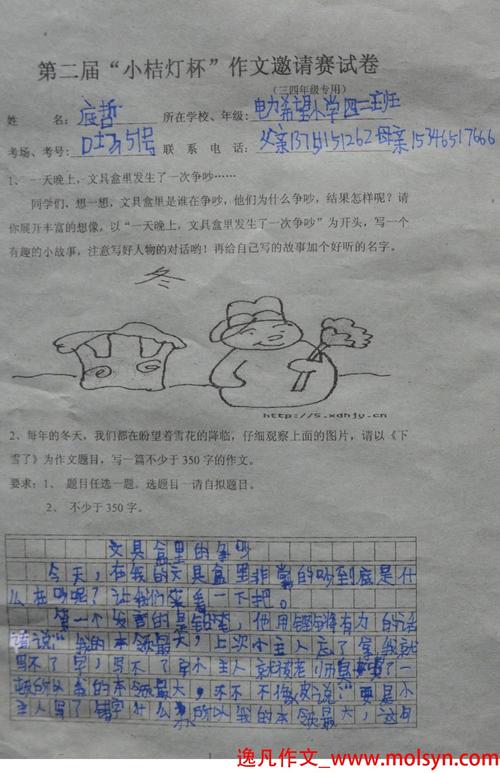 第二届“小桔灯杯”作文邀请赛试卷
（三四年级专用）
姓 名： 底哲 所在学校、年级: 电力希望小学四一班
考场、考号: 51号 联 系 电 话: 父亲 151262母亲15346517666
1、一天晚上，文具盒里发生了一次争吵……
同学们，想一想，文具盒里是谁在争吵，他们为什么争吵，结果怎样呢？请
你展开丰富的想像，以“一天晚上，文具盒里发生了一次争吵”为开头，写一个
有趣的小故事，注意写好人物的对话哟！再给自己写的故事加个好听的名字。
冬
http://5.xdhjy.cn
2、每年的冬天，我们都在盼望着雪花的降临，仔细观察上面的图片，请以《下
雪了》为作文题目，写一篇不少于 350 字的作文。
要求：1、 题目任选一题。选题目一请自拟题目。
2、 不少于 350 字。
文具盒里的争吵
今天，在我的文具盒里非常的吵到底是什
么在吵呢？让我们来看一下把。
第一个发言的是 ，他用铿锵有力的话
语说“我的本领最大，上次小主人忘了 我就
写不了字，写不了字小主人就被老师 了一
顿所以我的本领最大，不不不橡皮说“要是小
主人写了错字什么 所以我的本领最大，这句
逸凡作文_www.molsyn.com